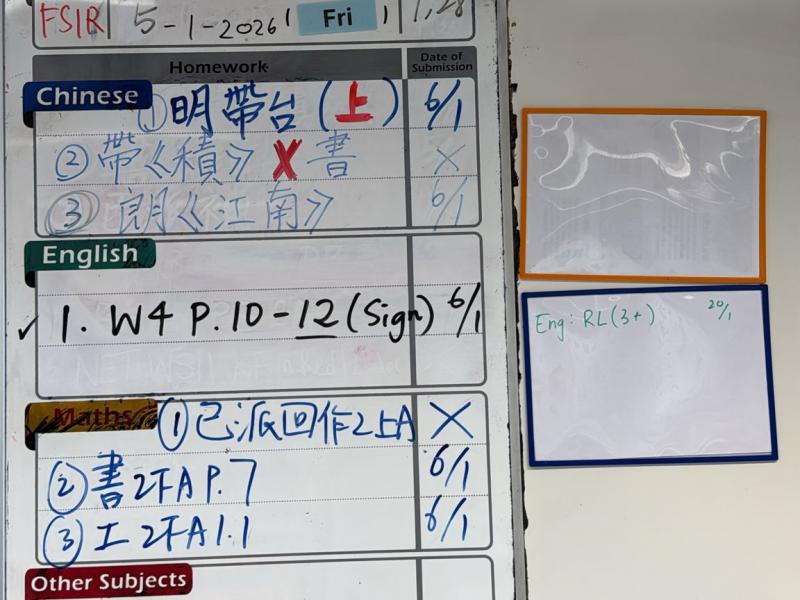 FSIR 5-1-2026 ( Fri )
Homework Date of Submission
Chinese ① 明帶台(上) 6/1
② 帶《積》X 書 X
③ 朗《江南》 6/1
English
1. W4 P.10-12 (Sign) 6/1
Maths ① 已派回作2上A X
② 書2下A P.7 6/1
③ 工2下A1.1 6/1
Other Subjects
Eng: RL(3+) 20/1